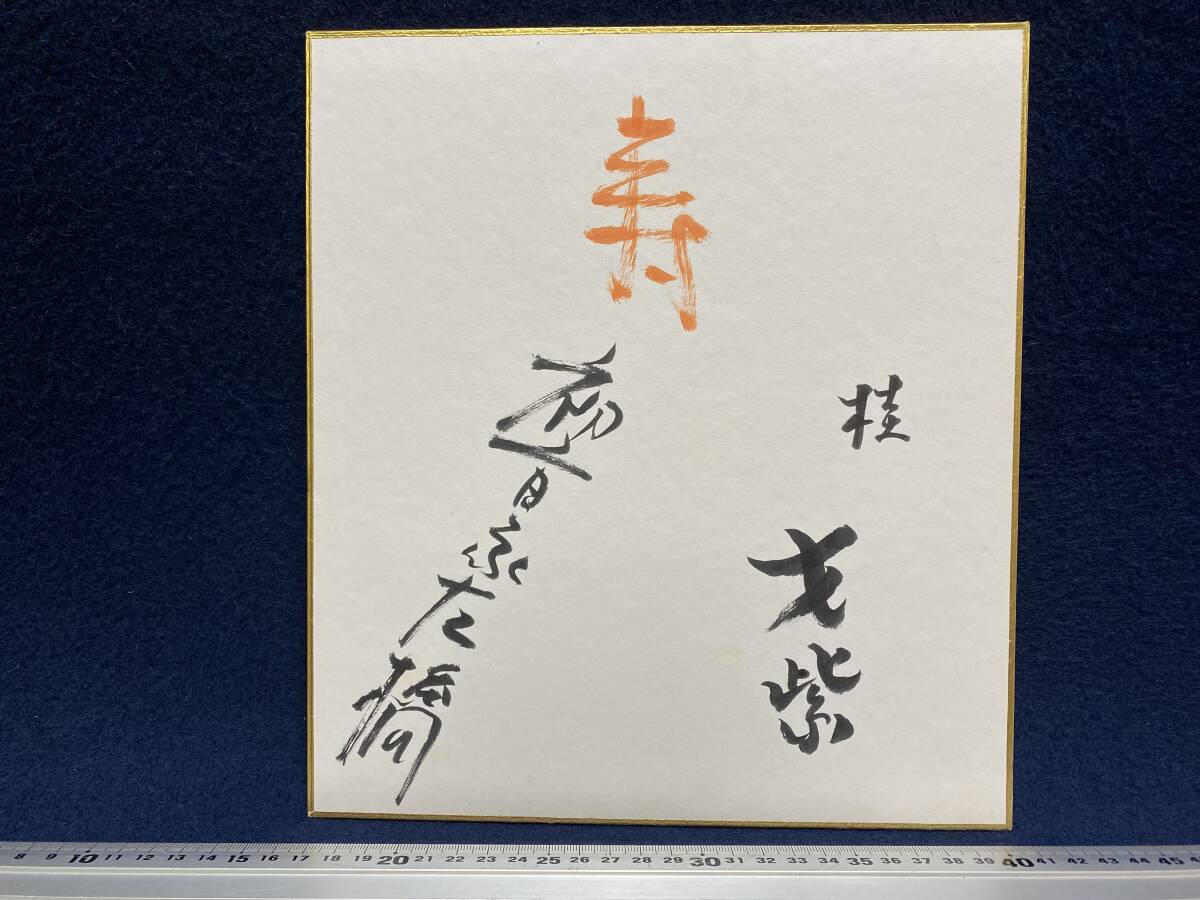 寿
桂 才紫
初音家左橋
8 9 10 11 12 13 14 15 16 17 18 19 20 21 22 23 24 25 26 27 28 29 30 31 32 33 34 35 36 37 38 39 40 41 42 43 44 45